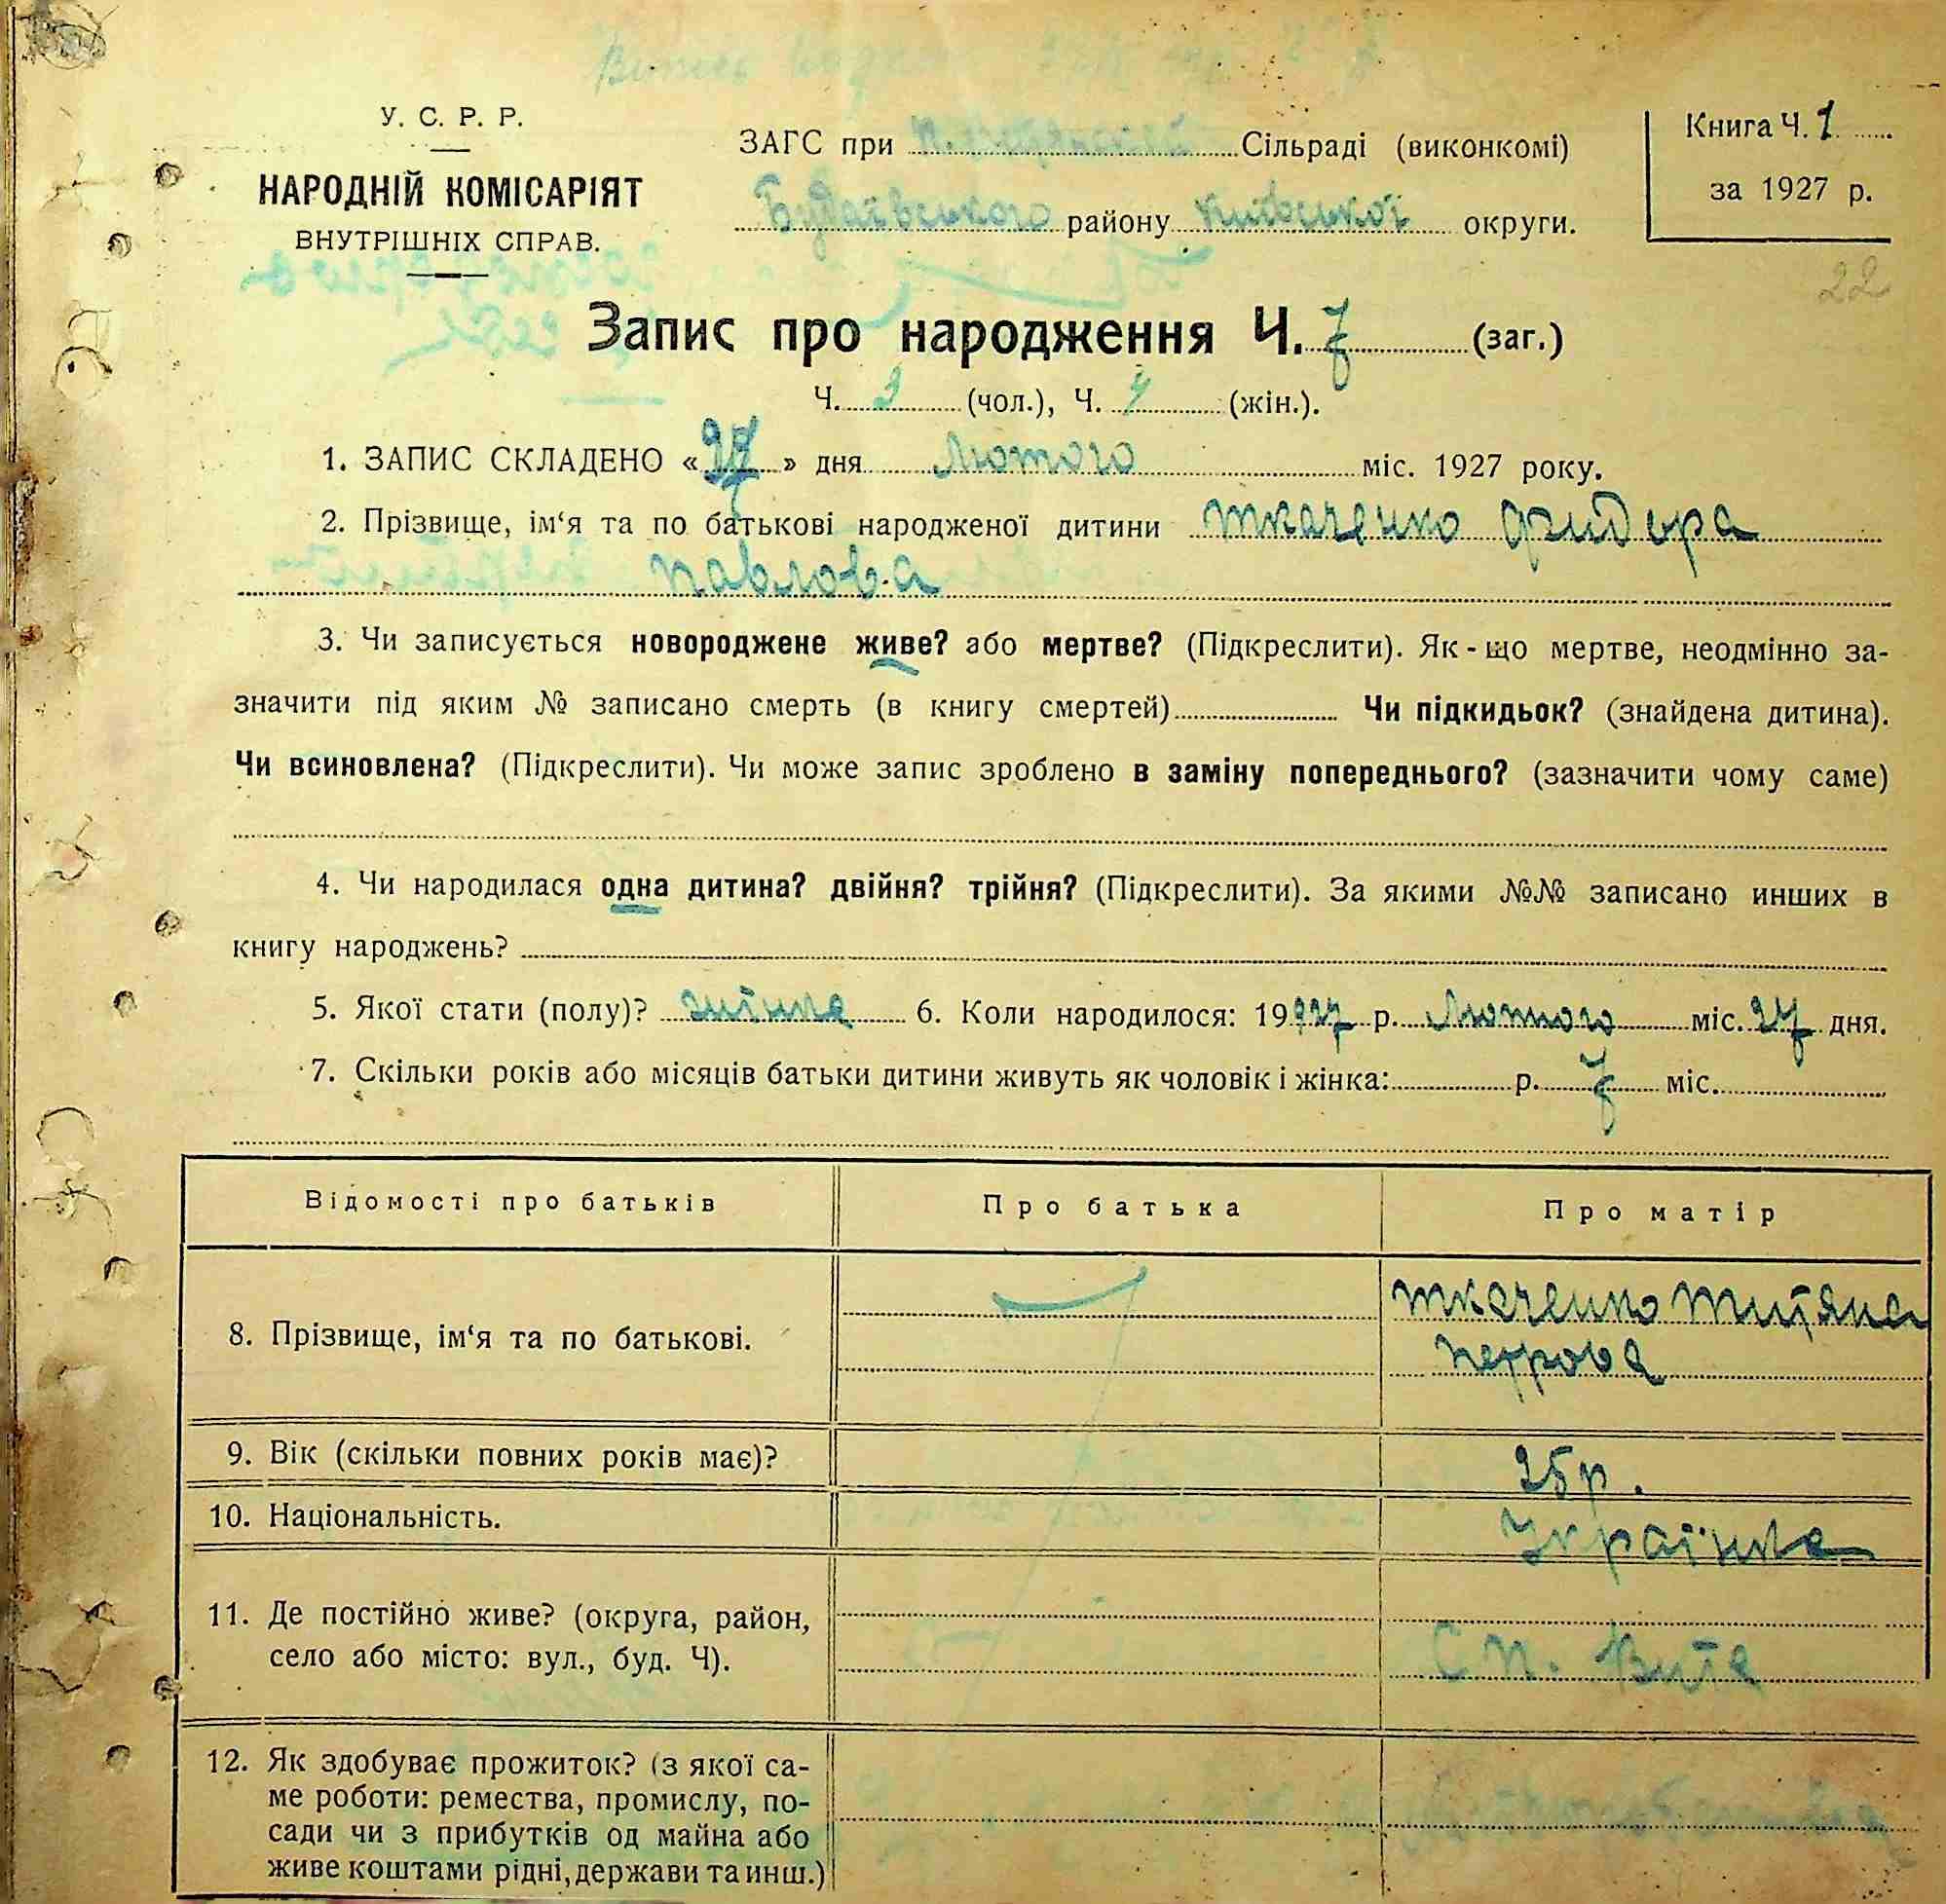 У. С. Р. Р.
НАРОДНІЙ КОМІСАРІЯТ
ВНУТРІШНІХ СПРАВ.
ЗАГС при Сільраді (виконкомі)
Будаївського району Київської округи.
Книга Ч. 1
за 1927 р.
22
Запис про народження Ч. 7 (заг.)
Ч. 3 (чол.), Ч. 4 (жін.).
1. ЗАПИС СКЛАДЕНО «27» дня Лютого міс. 1927 року.
2. Прізвище, ім‘я та по батькові народженої дитини Ткаченко
Павлова
3. Чи записується новороджене живе? або мертве? (Підкреслити). Як-що мертве, неодмінно за-
значити під яким № записано смерть (в книгу смертей) Чи підкидьок? (знайдена дитина).
Чи всиновлена? (Підкреслити). Чи може запис зроблено в заміну попереднього? (зазначити чому саме)
4. Чи народилася одна дитина? двійня? трійня? (Підкреслити). За якими №№ записано инших в
книгу народжень?
5. Якої стати (полу)? 6. Коли народилося: 1927 р. Лютого міс. 27 дня.
7. Скільки років або місяців батьки дитини живуть як чоловік і жінка: р. 7 міс.
Відомості про батьків Про батька Про матір
8. Прізвище, ім‘я та по батькові.
Ткаченко
Петрова
9. Вік (скільки повних років має)? 25 р.
10. Національність. Українка
11. Де постійно живе? (округа, район,
село або місто: вул., буд. Ч).
С П. Вита
12. Як здобуває прожиток? (з якої са-
ме роботи: ремества, промислу, по-
сади чи з прибутків од майна або
живе коштами рідні, держави та инш.)